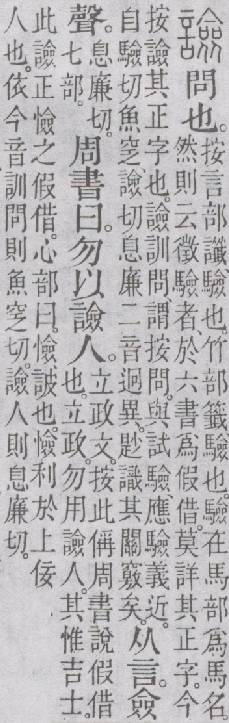 譣 問也。按言部讖、驗也。竹部籤、驗也。驗在馬部爲馬名。
然則云徵驗者、於六書爲假借。莫詳其正字。今
按譣其正字也。譣訓問。謂按問。與試驗、應驗義近。
自驗切魚窆、譣切息廉。二音迥異。尟識其關竅矣。从言。僉
聲。息廉切。
七部。周書曰。勿以譣人。立政文。按此偁周書說假借
也。立政。勿用譣人。其惟吉士。
此譣正憸之假借。心部曰。憸詖也。憸利於上佞
人也。依今音訓問則魚窆切。譣人則息廉切。